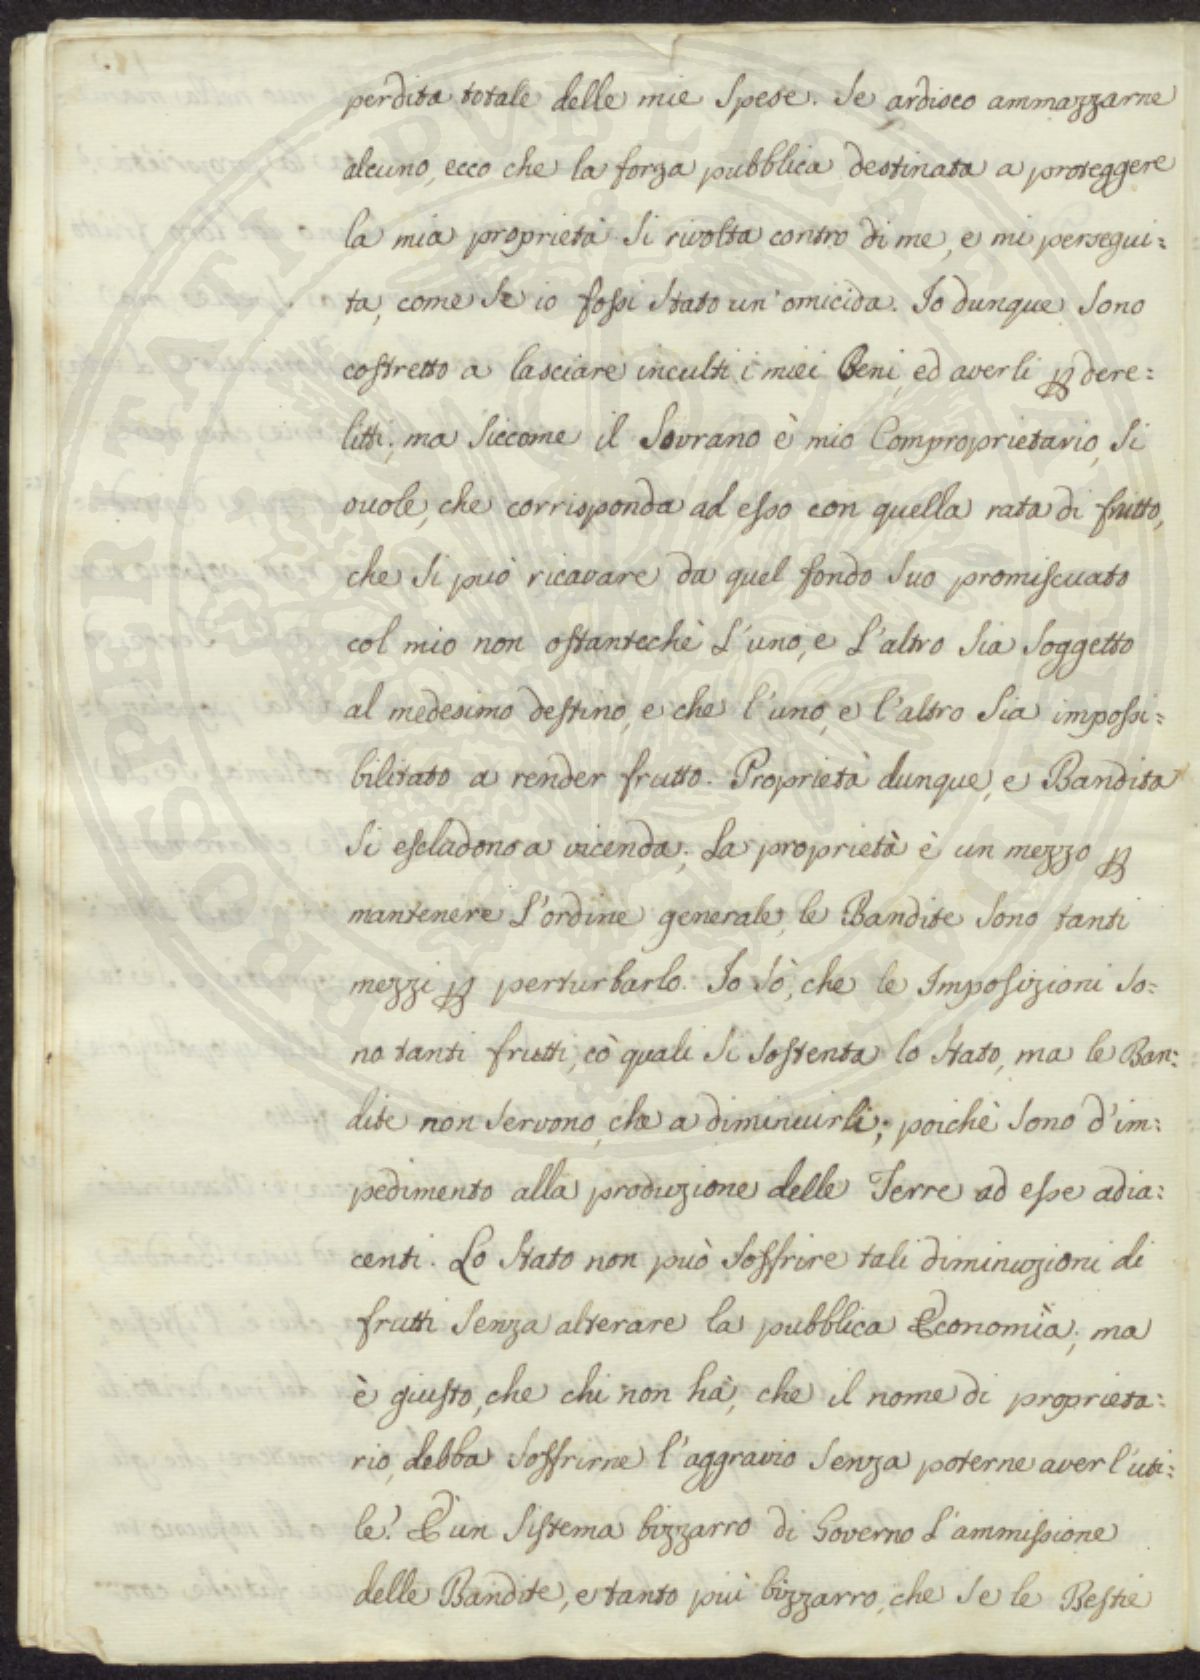 perdita totale delle mie spese. Se ardisco ammazzarne
alcuno, ecco che la forza pubblica destinata a proteggere
la mia proprietà si rivolta contro di me, e mi persegui:
ta, come se io fossi stato un' omicida. Io dunque sono
costretto a lasciare inculti i miei Beni, ed averli p dere:
litti; ma siccome il Sovrano è mio Comproprietario, si
vuole, che corrisponda ad esso con quella rata di frutto,
che si può ricavare da quel fondo suo promiscuato
col mio non ostantechè l'uno, e l'altro sia soggetto
al medesimo destino, e che l'uno, e l'altro sia impossi:
bilitato a render frutto. Proprietà dunque, e Bandita
si escludono a vicenda; La proprietà è un mezzo p
mantenere l'ordine generale, le Bandite sono tanti
mezzi p perturbarlo. Io sò, che le Imposizioni so:
no tanti frutti, cò quali si sostenta lo Stato, ma le Ban:
dite non servono, che a diminuirli; poichè sono d'im:
pedimento alla produzione delle Terre ad esse adia:
centi. Lo Stato non può soffrire tali diminuzioni di
frutti senza alterare la pubblica Economìa; ma
è giusto, che chi non hà, che il nome di proprieta:
rio, debba soffrirne l'aggravio senza poterne aver l'uti:
le? È un sistema bizzarro di Governo l'ammissione
delle Bandite, e tanto più bizzarro, che se le Bestie
PROSPERITATI PUBLICAE